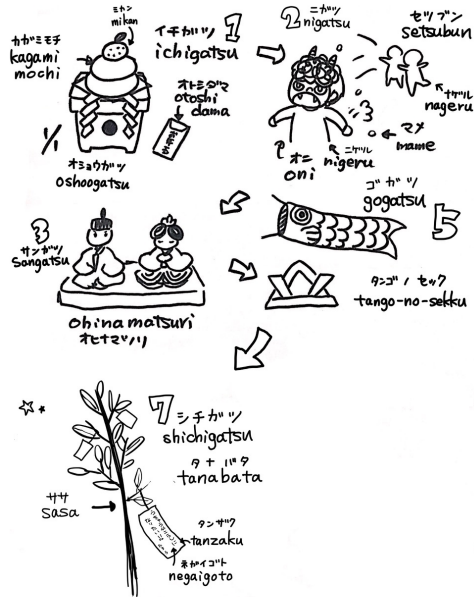 ミカン
mikan
カガミモチ
kagami
mochi
イチガツ
1
ichigatsu
オトシダマ
otoshi
dama
1/1
オショウガツ
oshoogatsu
2
ニガツ
nigatsu
セツブン
setsubun
ナゲル
nageru
マメ
mame
オニ
oni
ニゲル
nigeru
3
サンガツ
sangatsu
ohinamatsuri
オヒナマツリ
ゴガツ
gogatsu
5
タンゴノセック
tango-no-sekku
7
シチガツ
shichigatsu
タナバタ
tanabata
ササ
sasa
タンザク
tanzaku
ネガイゴト
negaigoto